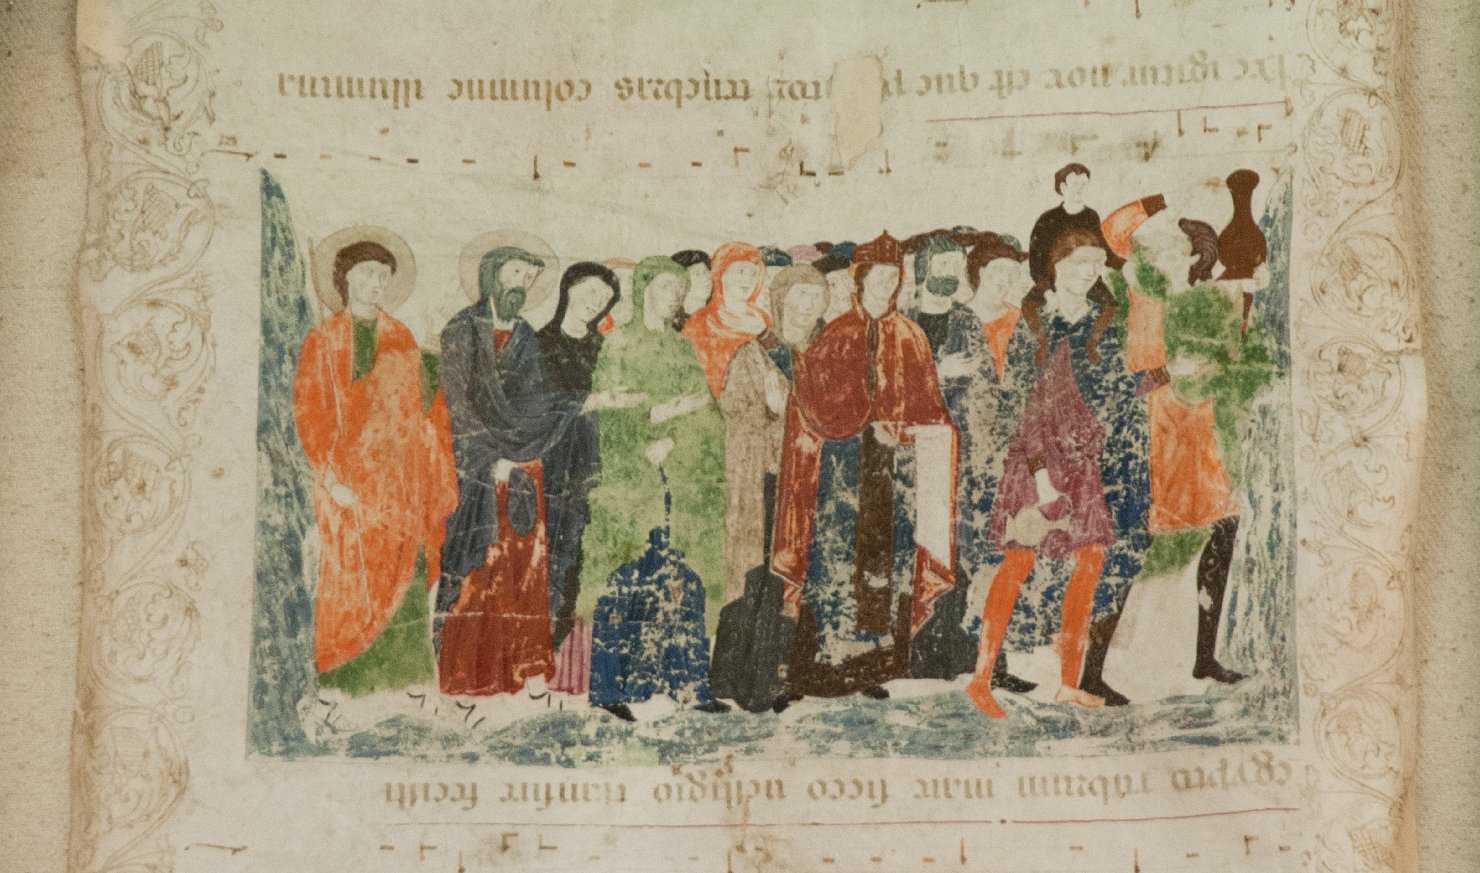 egypto rubrum mare sicco uestigio transire fecisti
Hec igitur nox est que tenebras columne illumina